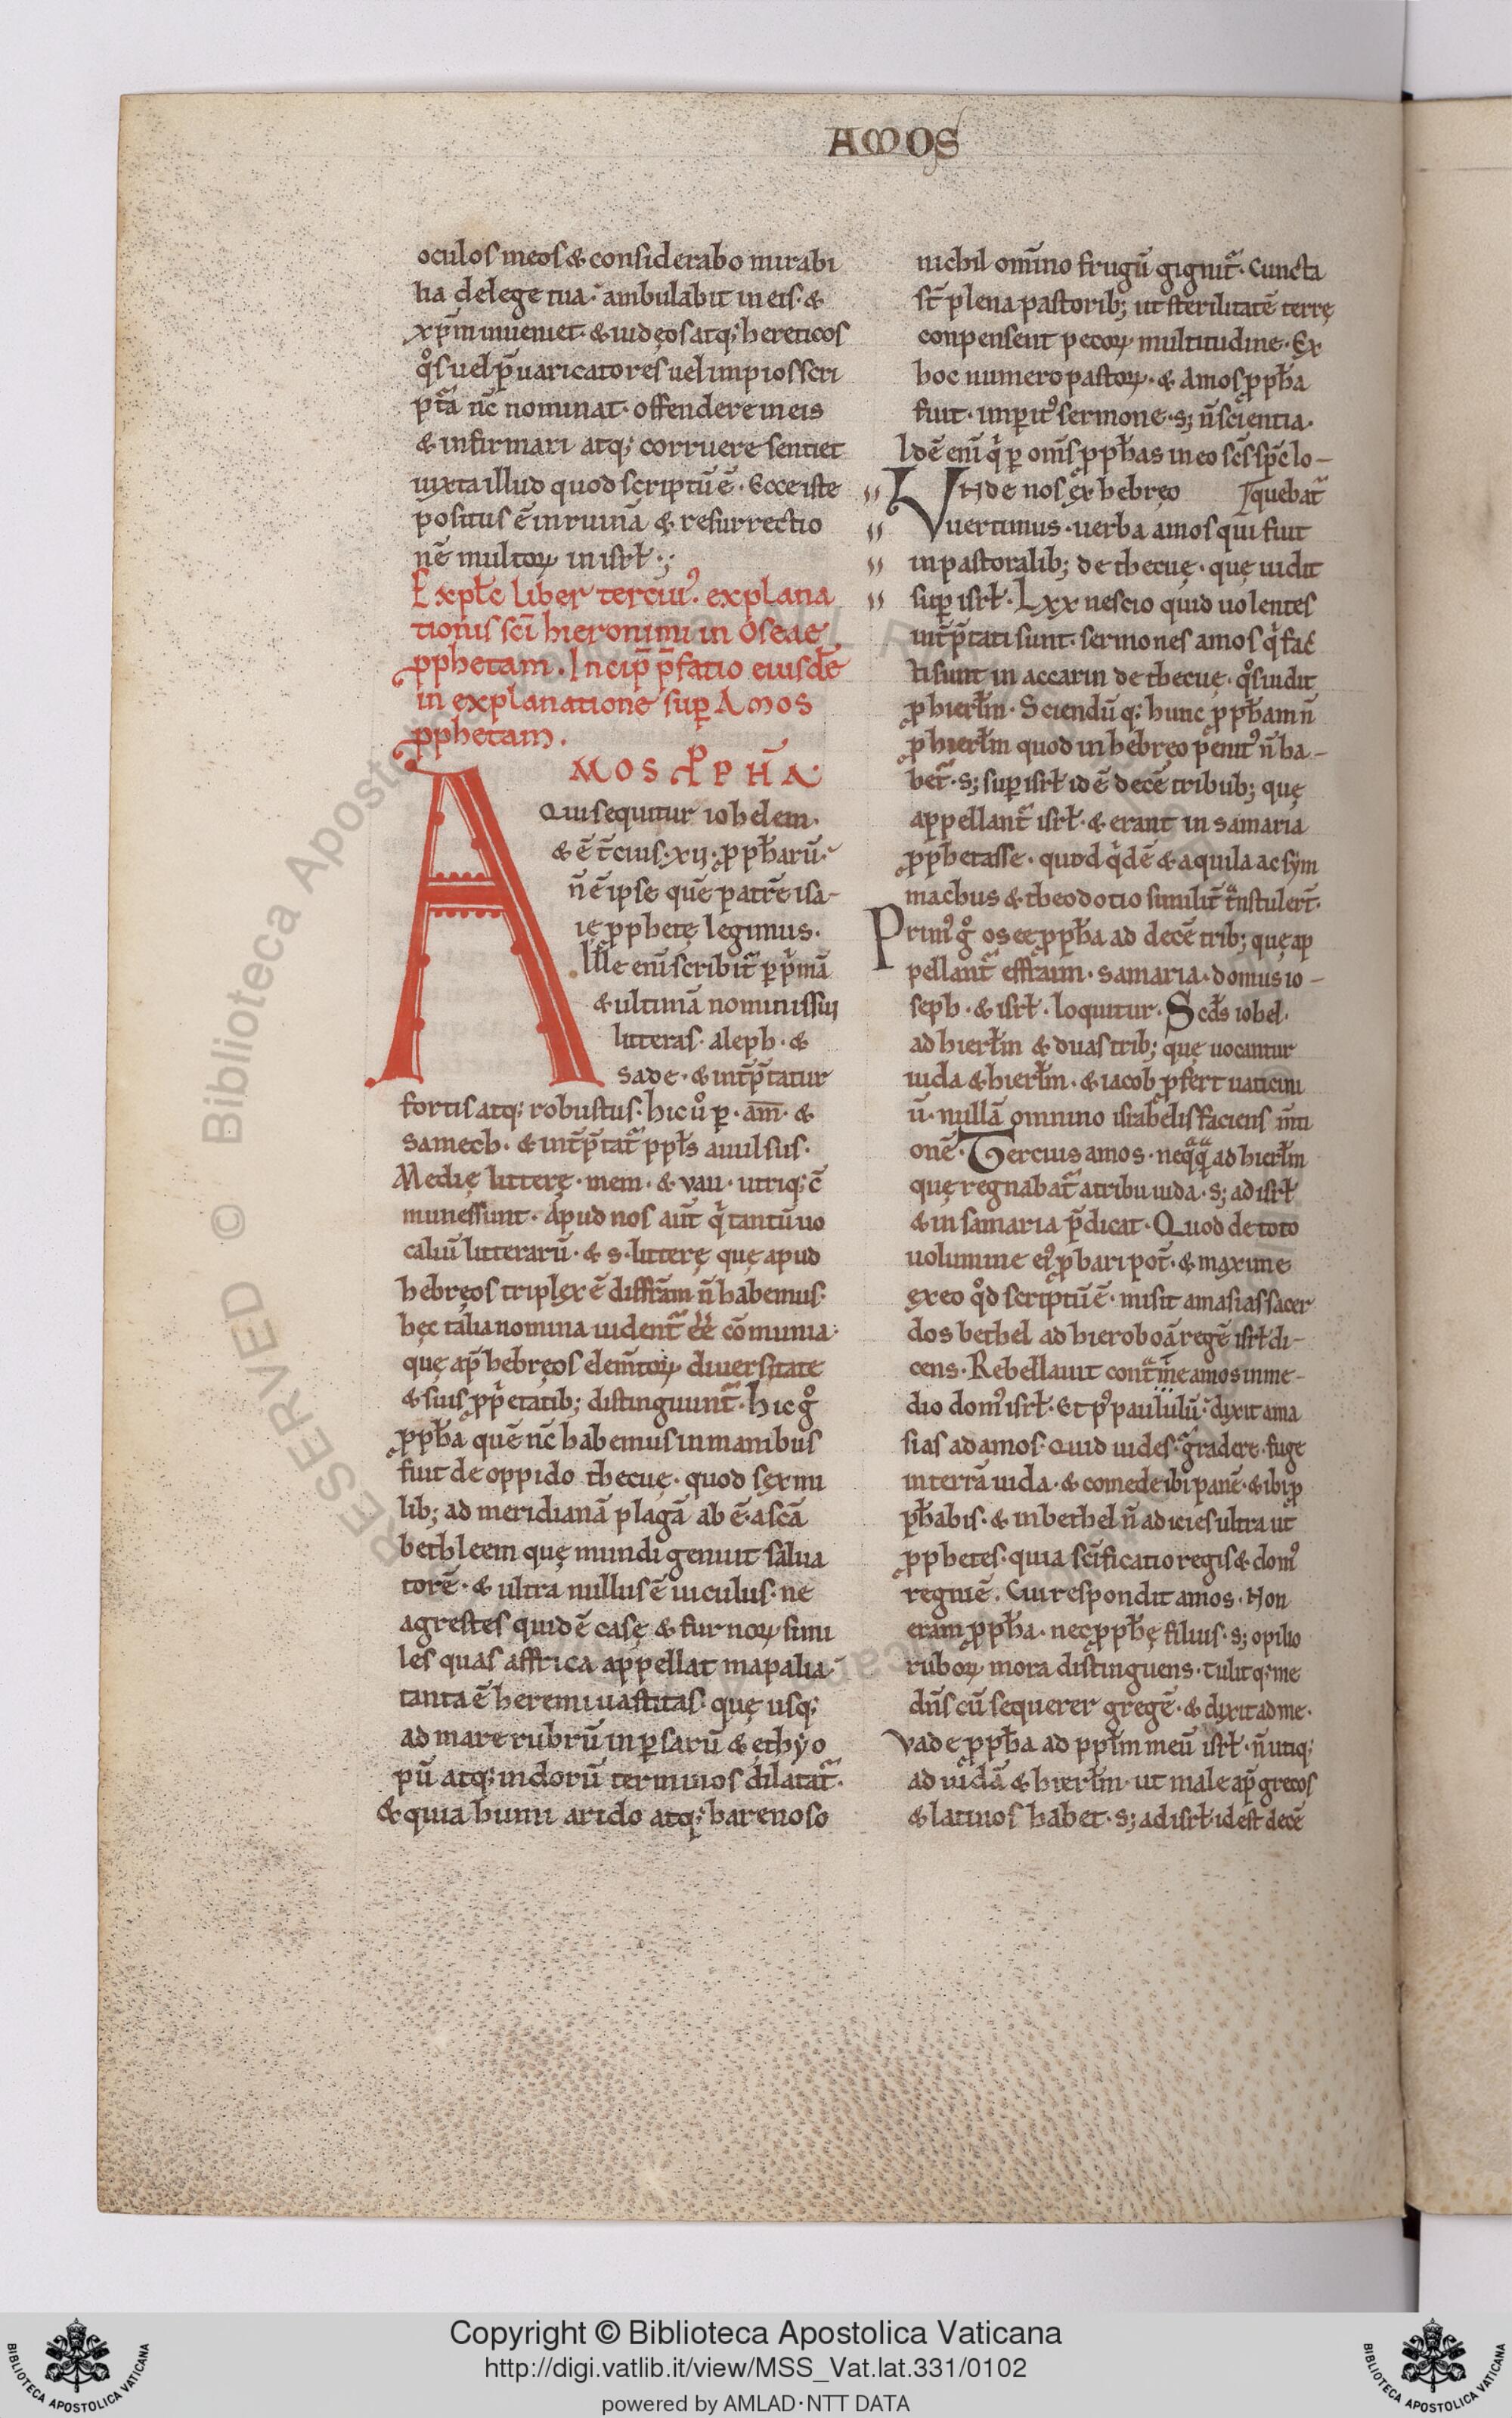 AMOS
oculos meos & considerabo mirabi
lia de lege tua. ambulabit in eis. &
xp̄m inueniet. & iudęos atq; hereticos
q̊s uel p̄uaricatores uel impios scri
ptᷓa nc̄ nominat. offendere in eis
& infirmari atq; corruere sentiet
iuxta illud quod scriptū ē. Ecce iste
positus ē in ruinā & resurrectio
nē multoꝝ in isrł.;
Explc̄ liber tercius. explana
tionis sc̄i hieronimi in Oseae
ꝓphetam. Incip̄ p̄fatio eiusdē
in explanatione suꝑ Amos
ꝓphetam.
AMOS ꝒPH̄A
Qui sequitur iohelem.
& ē t̄cius. xij. ꝓpħarū.
n̄ ē ipse quē patrē isa-
ię ꝓphetę legimus.
Ille eni̅ scribit᷑ ꝑ p̓mā
& ultimā nominis sui
litteras. aleph. &
sade. & int̄p̄tatur
fortis atq; robustus. hic ů ꝑ. am̄. &
samech. & int̄p̄tat᷑ ppłs auulsus.
Medię litterę. mem. & vau. utriq; c̄
munes sunt. Apud nos aut̄ q̓ tantū uo
caliū litterarū. & s. litterę quę apud
hebręos triplex ē diffr̄am n̄ habemus.
hęc talia nomina uident᷑ ee̅ cōmunia.
quę ap̄ hebręos elem̄toꝝ diuersitate
& suis ꝓp̓etatib; distinguunt᷑. hic g̊
ꝓpħa quē nc̄ habemus in manibus
fuit de oppido thecuę. quod sex mi
lib; ad meridianā plagā abē. a sc̄a
bethleem quę mundi genuit salua
torē. & ultra nullus ē uiculus. ne
agrestes quidē casę & furnoꝝ simi
les quas affrica appellat mapalia.
tanta ē heremi uastitas. quę usq;
ad mare rubrū in ꝑsarū & ęthyo
pū atq; indorū terminos dilatat᷑.
& quia humi arido atq; harenoso
nichil omīno frugū gignit᷑. Cuncta
st̄ plena pastorib; ut sterilitatē terrę
conpensent pecoꝝ multitudine. Ex
hoc numero pastoꝝ. & Amos ꝓpħa
fuit. imꝑit᷒ sermone. s; n̄ scientia.
Idē eni̅ q̓ ꝑ om̄s ꝓpħas in eo sc̄s sp̄c lo-
Unde nos ex hebręo quebat᷑
uertimus. uerba amos qui fuit
in pastoralib; de thecuę. quę uidit
suꝑ isrł. Lxx nescio quid uolentes
int̄p̄tati sunt. sermones amos q̓ fac̄
ti sunt in accarin de thecuę. q̊s uidit
ꝓ hierłm. Sciendū q; hunc ꝓpħam n̄
ꝓ hierłm quod in hebręo penit᷒ n̄ ha-
bet᷑. s; suꝑ isrł id ē decē tribub; quę
appellant᷑ isrł. & erant in samaria
ꝓphetasse. quod q̓dē & aquila ac sym
machus & theodotio similit̄ tᷓnstulert̄.
Prim᷒ g̊ osee ꝓpħa ad decē trib; quę ap
pellant᷑ effraim. samaria. domus io-
seph. & isrł. loquitur. Sc̄ds iohel.
ad hierłm & duas trib; quę uocantur
iuda & hierłm. & iacob ꝓfert uaticini
ū. nullā omnino israhelis faciens m̄ti
onē. Tercius amos. neqᷓqᷓ ad hierłm
quę regnabat᷑ a tribu iuda. s; ad isrł
& in samaria p̄dicat. Quod de toto
uolumine ei᷒ ꝓbari pot̄. & maxime
ex eo q̊d scriptū ē. misit amasias sacer
dos bethel ad hieroboā regē isrł di-
cens. Rebellauit contᷓ me amos in me-
dio dom᷒ isrł. Et p᷒ paululū. dixit ama
sias ad amos. Quid uides. gᷓdere. fuge
in terrā iuda. & comede ibi panē. & ibi ꝓ
pħabis. & in bethel n̄ adicies ultra ut
ꝓphetes. quia sc̄ificatio regis & dom᷒
regni ē. Cui respondit amos. Non
eram ꝓpħa. nec ꝓpħę filius. s; opilio
ruboꝝ mora distinguens. tulitq; me
dn̄s cū sequerer gregē. & dixit ad me.
Vade ꝓpħa ad ppłm meū isrł. n̄ utiq;
ad iudā & hierłm. ut male ap̄ grecos
& latinos habet. s; ad isrł. id est decē
Copyright © Biblioteca Apostolica Vaticana
http://digi.vatlib.it/view/MSS_Vat.lat.331/0102
powered by AMLAD·NTT DATA
BIBLIOTECA APOSTOLICA VATICANA
BIBLIOTECA APOSTOLICA VATICANA